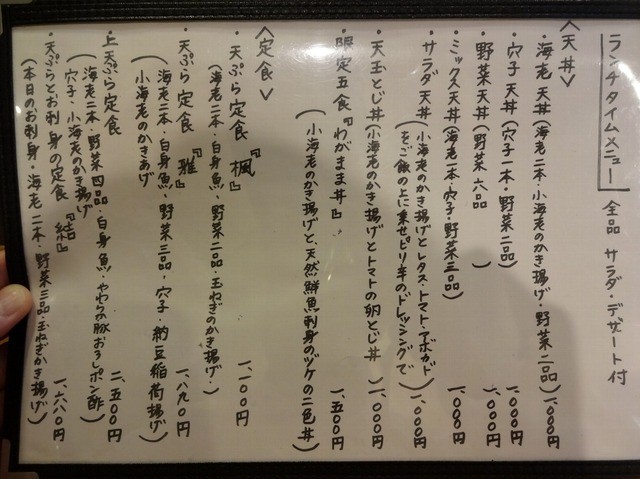 ランチタイムメニュー 全品 サラダ・デザート付
〈天丼〉
・海老天丼(海老二本・小海老のかき揚げ・野菜二品) 一、〇〇〇円
・穴子天丼(穴子一本・野菜二品) 一、〇〇〇円
・野菜天丼(野菜六品) 一、〇〇〇円
・ミックス天丼(海老二本・穴子・野菜三品) 一、〇〇〇円
・サラダ天丼(小海老のかき揚げとレタス・トマト・アボカド
をご飯の上に乗せピリ辛のドレッシングで) 一、〇〇〇円
・天玉とじ丼(小海老のかき揚げとトマトの卵とじ丼) 一、〇〇〇円
・限定五食『わがまま丼』 一、五〇〇円
(小海老のかき揚げと、天然鮮魚刺身のヅケの二色丼)
〈定食〉
・天ぷら定食『楓』 一、一〇〇円
(海老二本・白身魚、野菜二品・玉ねぎのかき揚げ・)
・天ぷら定食『雅』 一、八九〇円
(海老二本・白身魚・野菜三品・穴子・納豆稲荷揚げ
小海老のかきあげ)
・上天ぷら定食 二、五〇〇円
(海老二本・野菜四品・白身魚・やわらか豚おろしポン酢
穴子・小海老のかき揚げ)
・天ぷらとお刺身の定食『結』 一、六八〇円
(本日のお刺身・海老二本・野菜三品・玉ねぎかき揚げ)